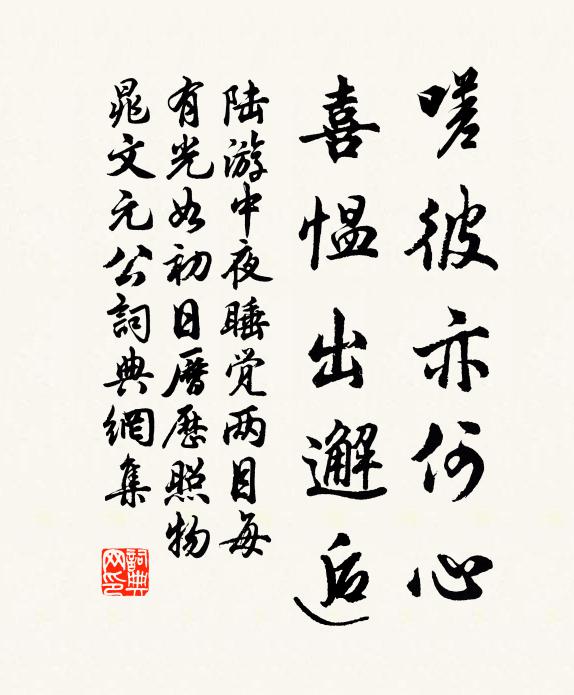 嗟彼亦何心
喜愠出邂逅
陆游中夜睡觉两目每
有光如初日历历照物
晁文元公詞典網集
詞典網印